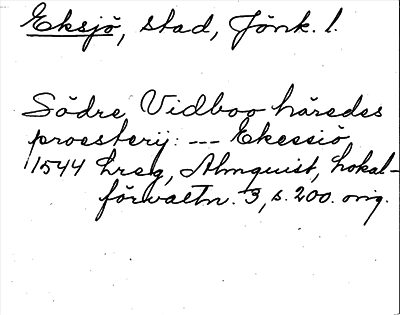 Eksjö, stad, Jönk. l.
Södre Vidboo häredes
proesterij: --- Ekessiö
1544 hreg, Almquist, Lokal-
förvaltn. 3, s. 200. orig.